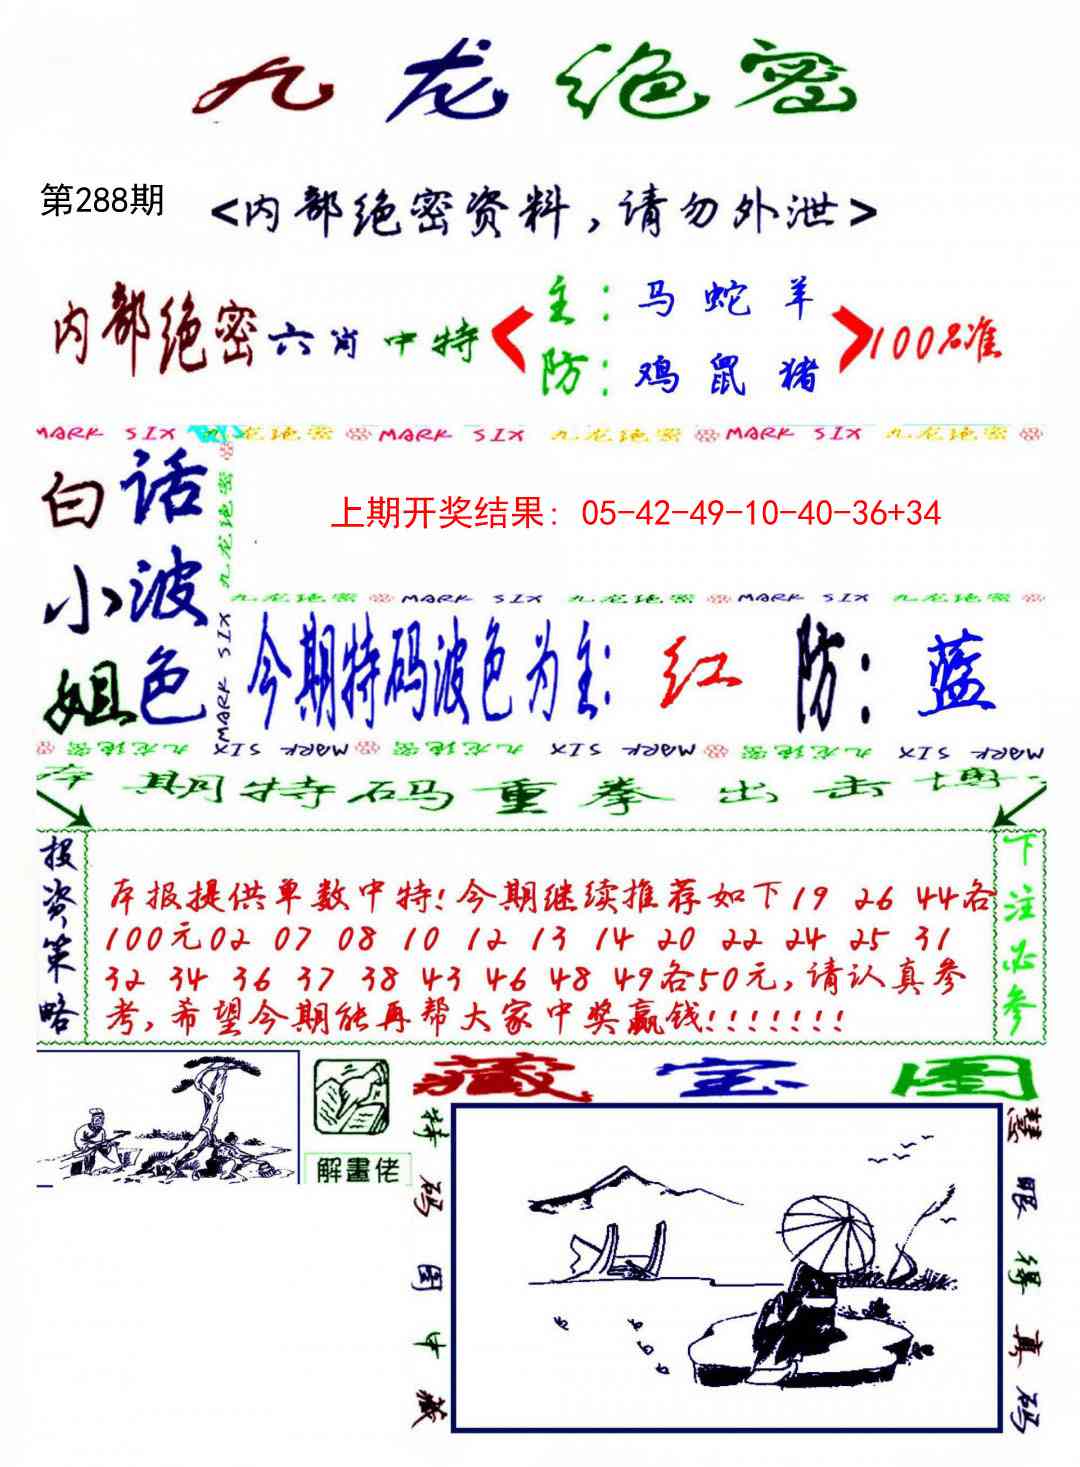 九龙绝密
第288期
<内部绝密资料，请勿外泄>
内部绝密六肖中特
主：马 蛇 羊
防：鸡 鼠 猪
100%准
MARK SIX 九龙绝密 MARK SIX 九龙绝密 MARK SIX 九龙绝密
白小姐
话波色
九龙绝密
MARK SIX
上期开奖结果：05-42-49-10-40-36+34
九龙绝密 MARK SIX 九龙绝密 MARK SIX 九龙绝密
今期特码波色为主：红 防：蓝
九龙绝密 MARK SIX 九龙绝密 MARK SIX 九龙绝密 MARK SIX
本期特码重拳出击博
投资策略
本报提供单数中特!今期继续推荐如下19 26 44各
100元02 07 08 10 12 13 14 20 22 24 25 31
32 34 36 37 38 43 46 48 49各50元,请认真参
考,希望今期能再帮大家中奖赢钱!!!!!!!
下注必参
解畫佬
藏宝图
特码图中藏
慧眼得真码